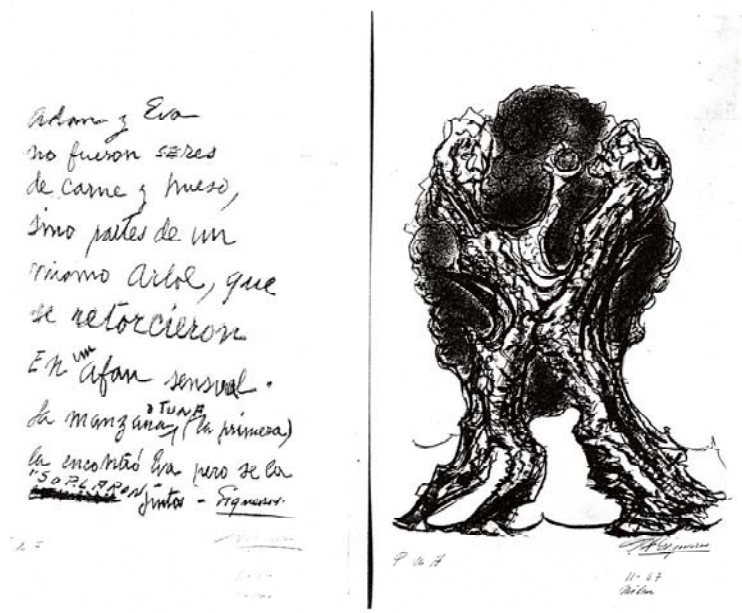 Adan y Eva
no fueron SERES
de carne y hueso,
sino partes de un
mismo Arbol, que
se retorcieron
En un Afan sensual.
La manzana, o TUNA (la primera)
la encontró Eva pero se la
"SOPLARON" juntos - Siqueiros.
P de A
Siqueiros
11-67